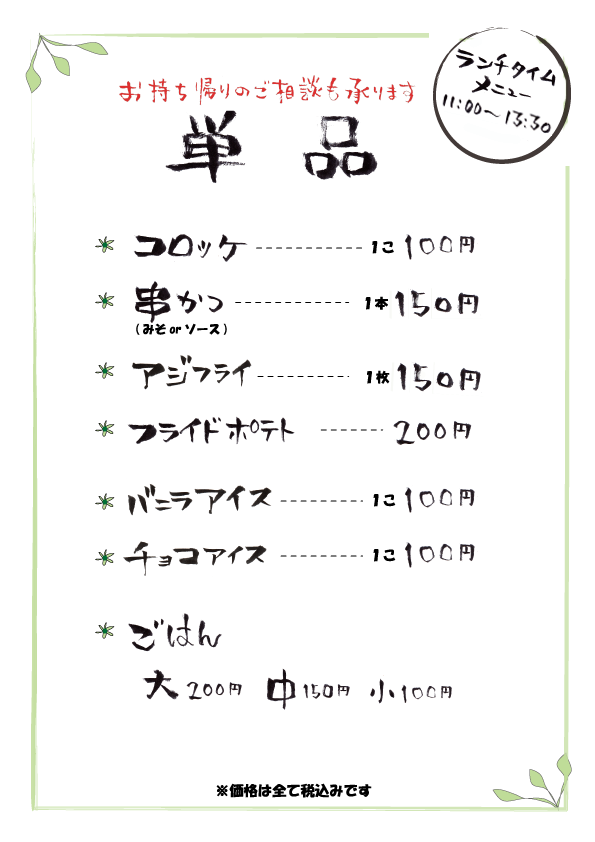 ランチタイム
メニュー
11:00〜13:30
お持ち帰りのご相談も承ります
単品
コロッケ ------------ 1こ 100円
串かつ ------------ 1本 150円
(みそ or ソース)
アジフライ ---------- 1枚 150円
フライドポテト ------- 200円
バニラアイス --------- 1こ 100円
チョコアイス --------- 1こ 100円
ごはん
大 200円 中 150円 小 100円
※価格は全て税込みです